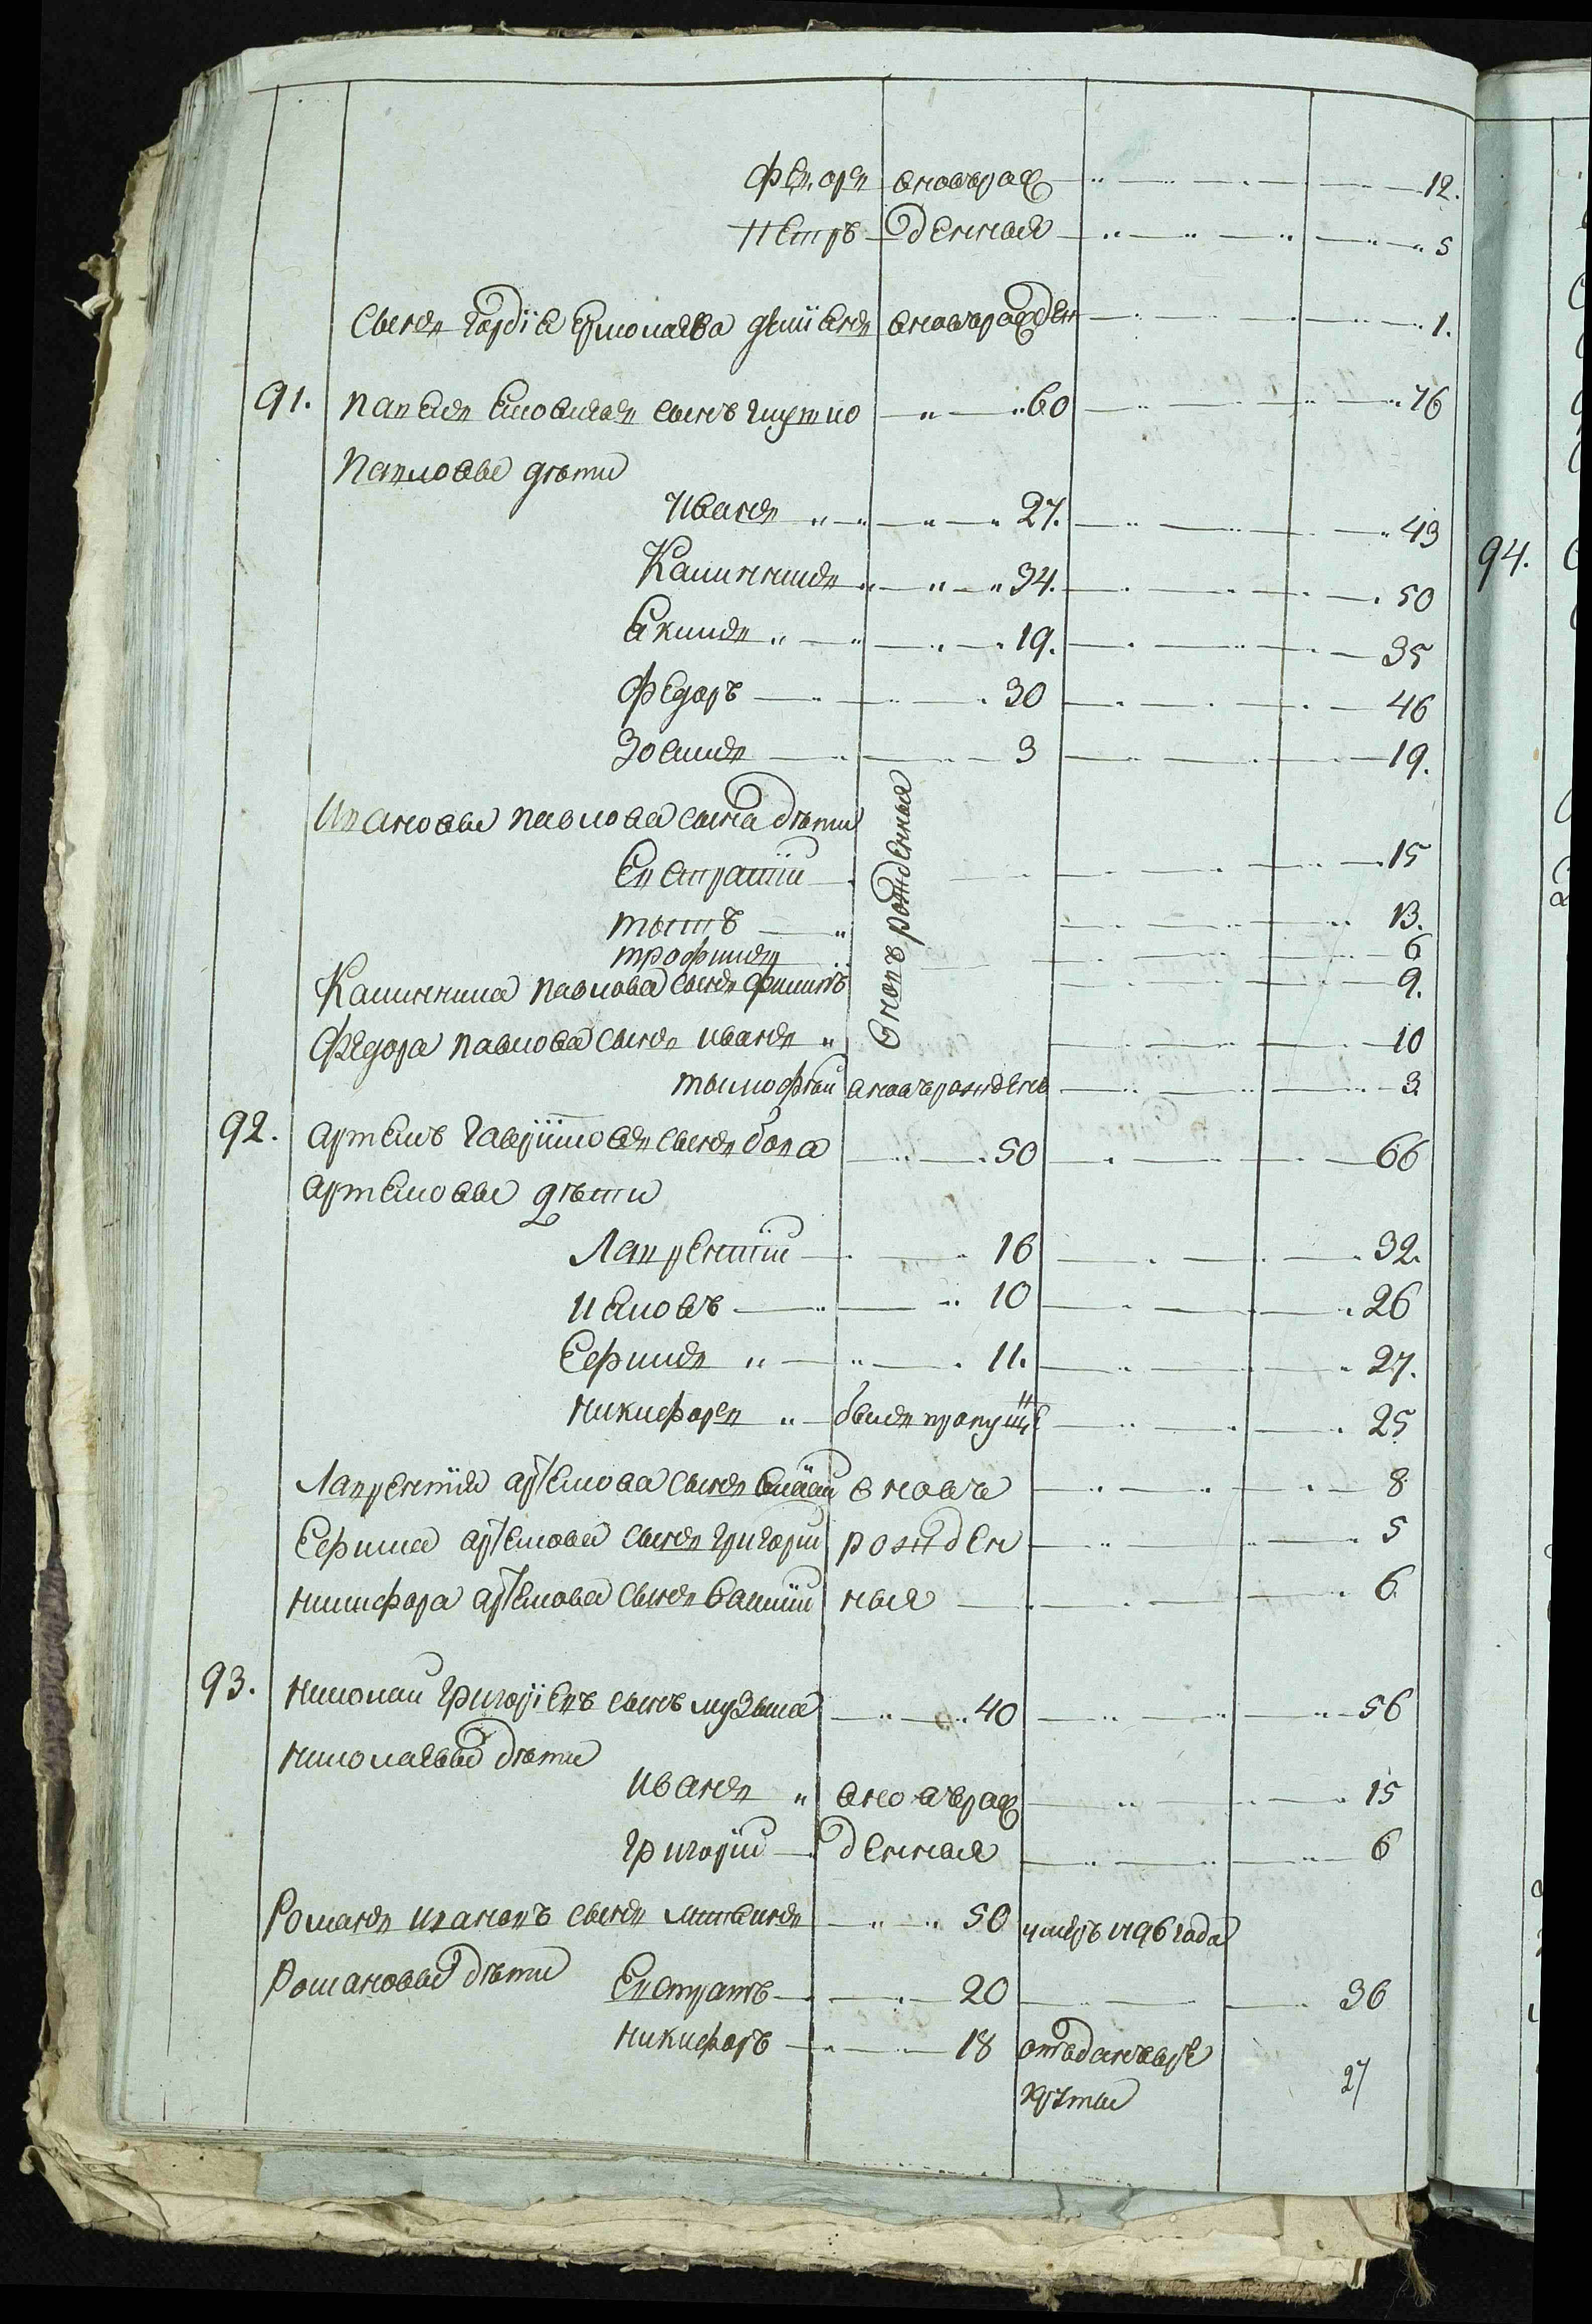 Федоръ вновьрож 12.
Петръ денныя 5
Сынъ Гордѣя Ермолаева Демианъ вновьрожден 1.
91. Павелъ сынъ 60 76
Павловы дѣти
Иванъ 27. 43
Калинникъ 34. 50
Екимъ 19. 35
Федоръ 30 46
Зосимъ 3 19.
Ивановы Павлова сына дѣти вновь рожденныя
Евстратии 15
Титъ 13.
Трофимъ 6
Калинника Павлова сынъ Филипъ 9.
Федора Павлова сынъ Иванъ 10
Тимофѣи вновьрожденъ 3
92. Артемъ Гаврииловъ сынъ 50 66
Артемовы дѣти
Лаврентии 16 32.
Иевловъ 10 26
Ефимъ 11. 27.
Никифоръ былъ пропуще 25
Лаврентия Артемова сынъ вновь 8
Ефима Артемова сынъ Григории рожден 5
Никифора Артемова сынъ Василии ныя 6
93. Николаи Григориевъ сынъ Музыка 40 56
Николаевы дѣти
Иванъ вновьрож 15
Григории денныя 6
Романъ Ивановъ сынъ Литвинъ 50 умеръ 1796 года
Романовы дѣти Евстратъ 20 36
Никифоръ 18 отъданъвре
круты 27
94.